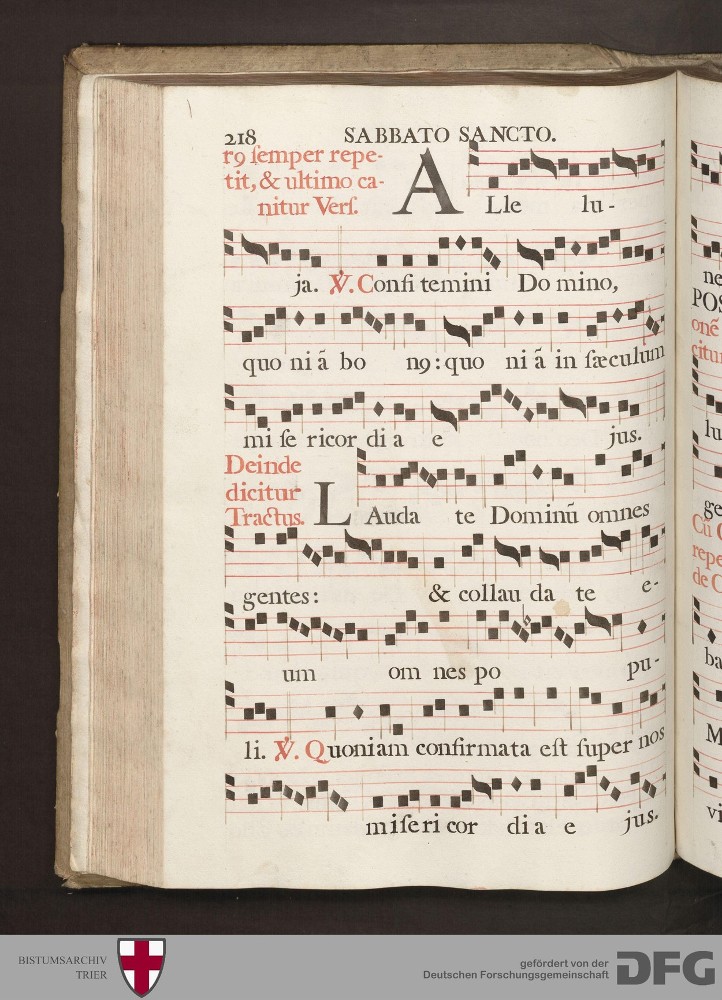 218 SABBATO SANCTO.
r9 semper repe-
tit, & ultimo ca-
nitur Vers.
ALle lu-
ja. ℣. Confi temini Do mino,
quo ni ã bo n9: quo ni ã in sæculum
mi se ricor di a e jus.
Deinde
dicitur
Tractus.
LAuda te Dominũ omnes
gentes: & collau da te e-
um om nes po pu-
li. ℣. Quoniam confirmata est super nos
miseri cor di a e jus.
ne
POS
onẽ
citur
lu
ge
Cũ
repe
de C
ba
M
vi
BISTUMSARCHIV
TRIER
gefördert von der
Deutschen Forschungsgemeinschaft
DFG